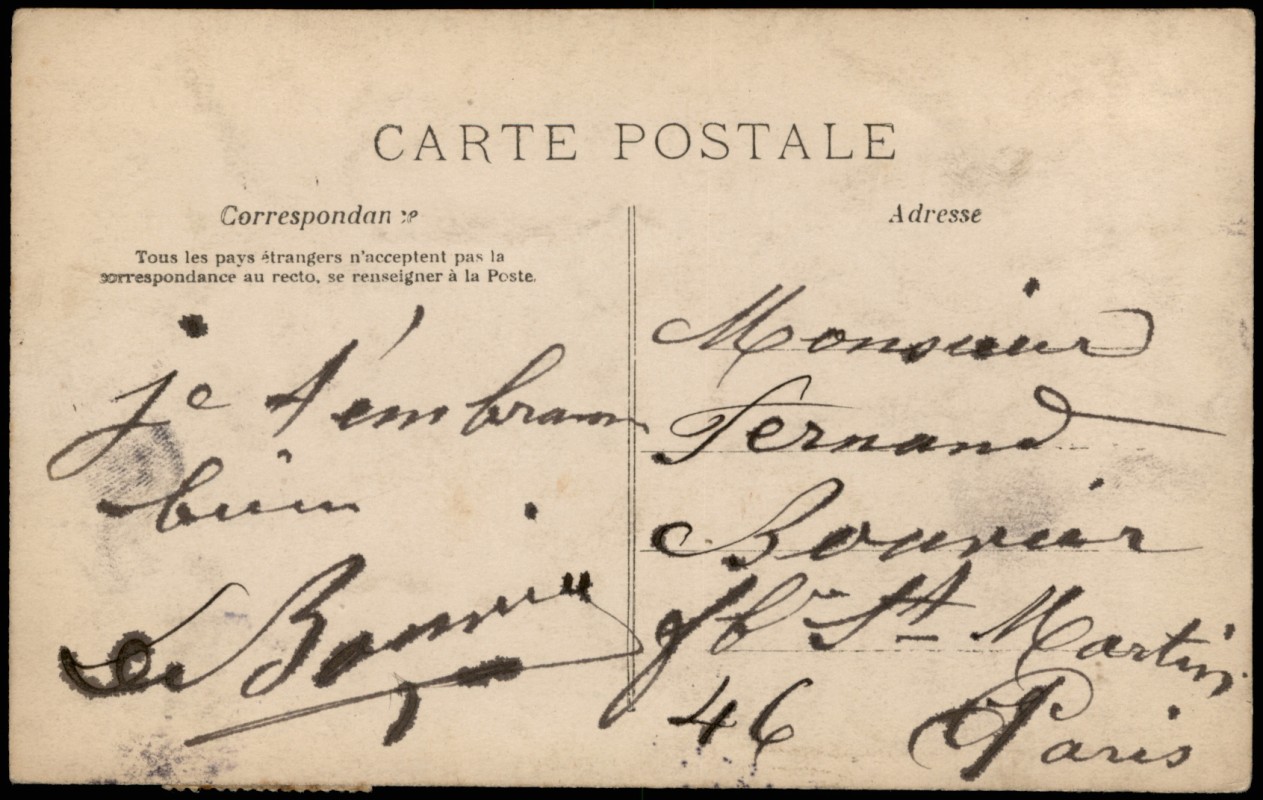 CARTE POSTALE
Correspondance
Tous les pays étrangers n'acceptent pas la
correspondance au recto, se renseigner à la Poste.
je t'embrasse
bien
Bonnier
Adresse
Monsieur
Fernand
Bonnier
fbg St Martin
46 Paris